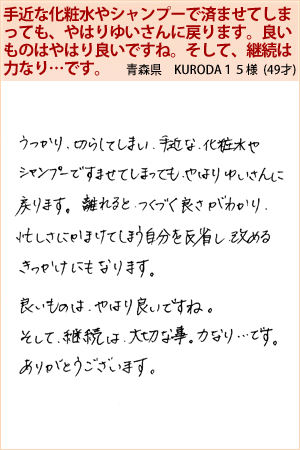 手近な化粧水やシャンプーで済ませてしま
っても、やはりゆいさんに戻ります。良い
ものはやはり良いですね。そして、継続は
力なり…です。 青森県 KURODA15様 (49才)
うっかり、切らしてしまい、手近な、化粧水や
シャンプーですませてしまっても、やはりゆいさんに
戻ります。離れると、つくづく良さがわかり、
忙しさにかまけてしまう自分を反省し改める
きっかけにもなります。
良いものは、やはり良いですね。
そして、継続は、大切な事。力なり…です。
ありがとうございます。